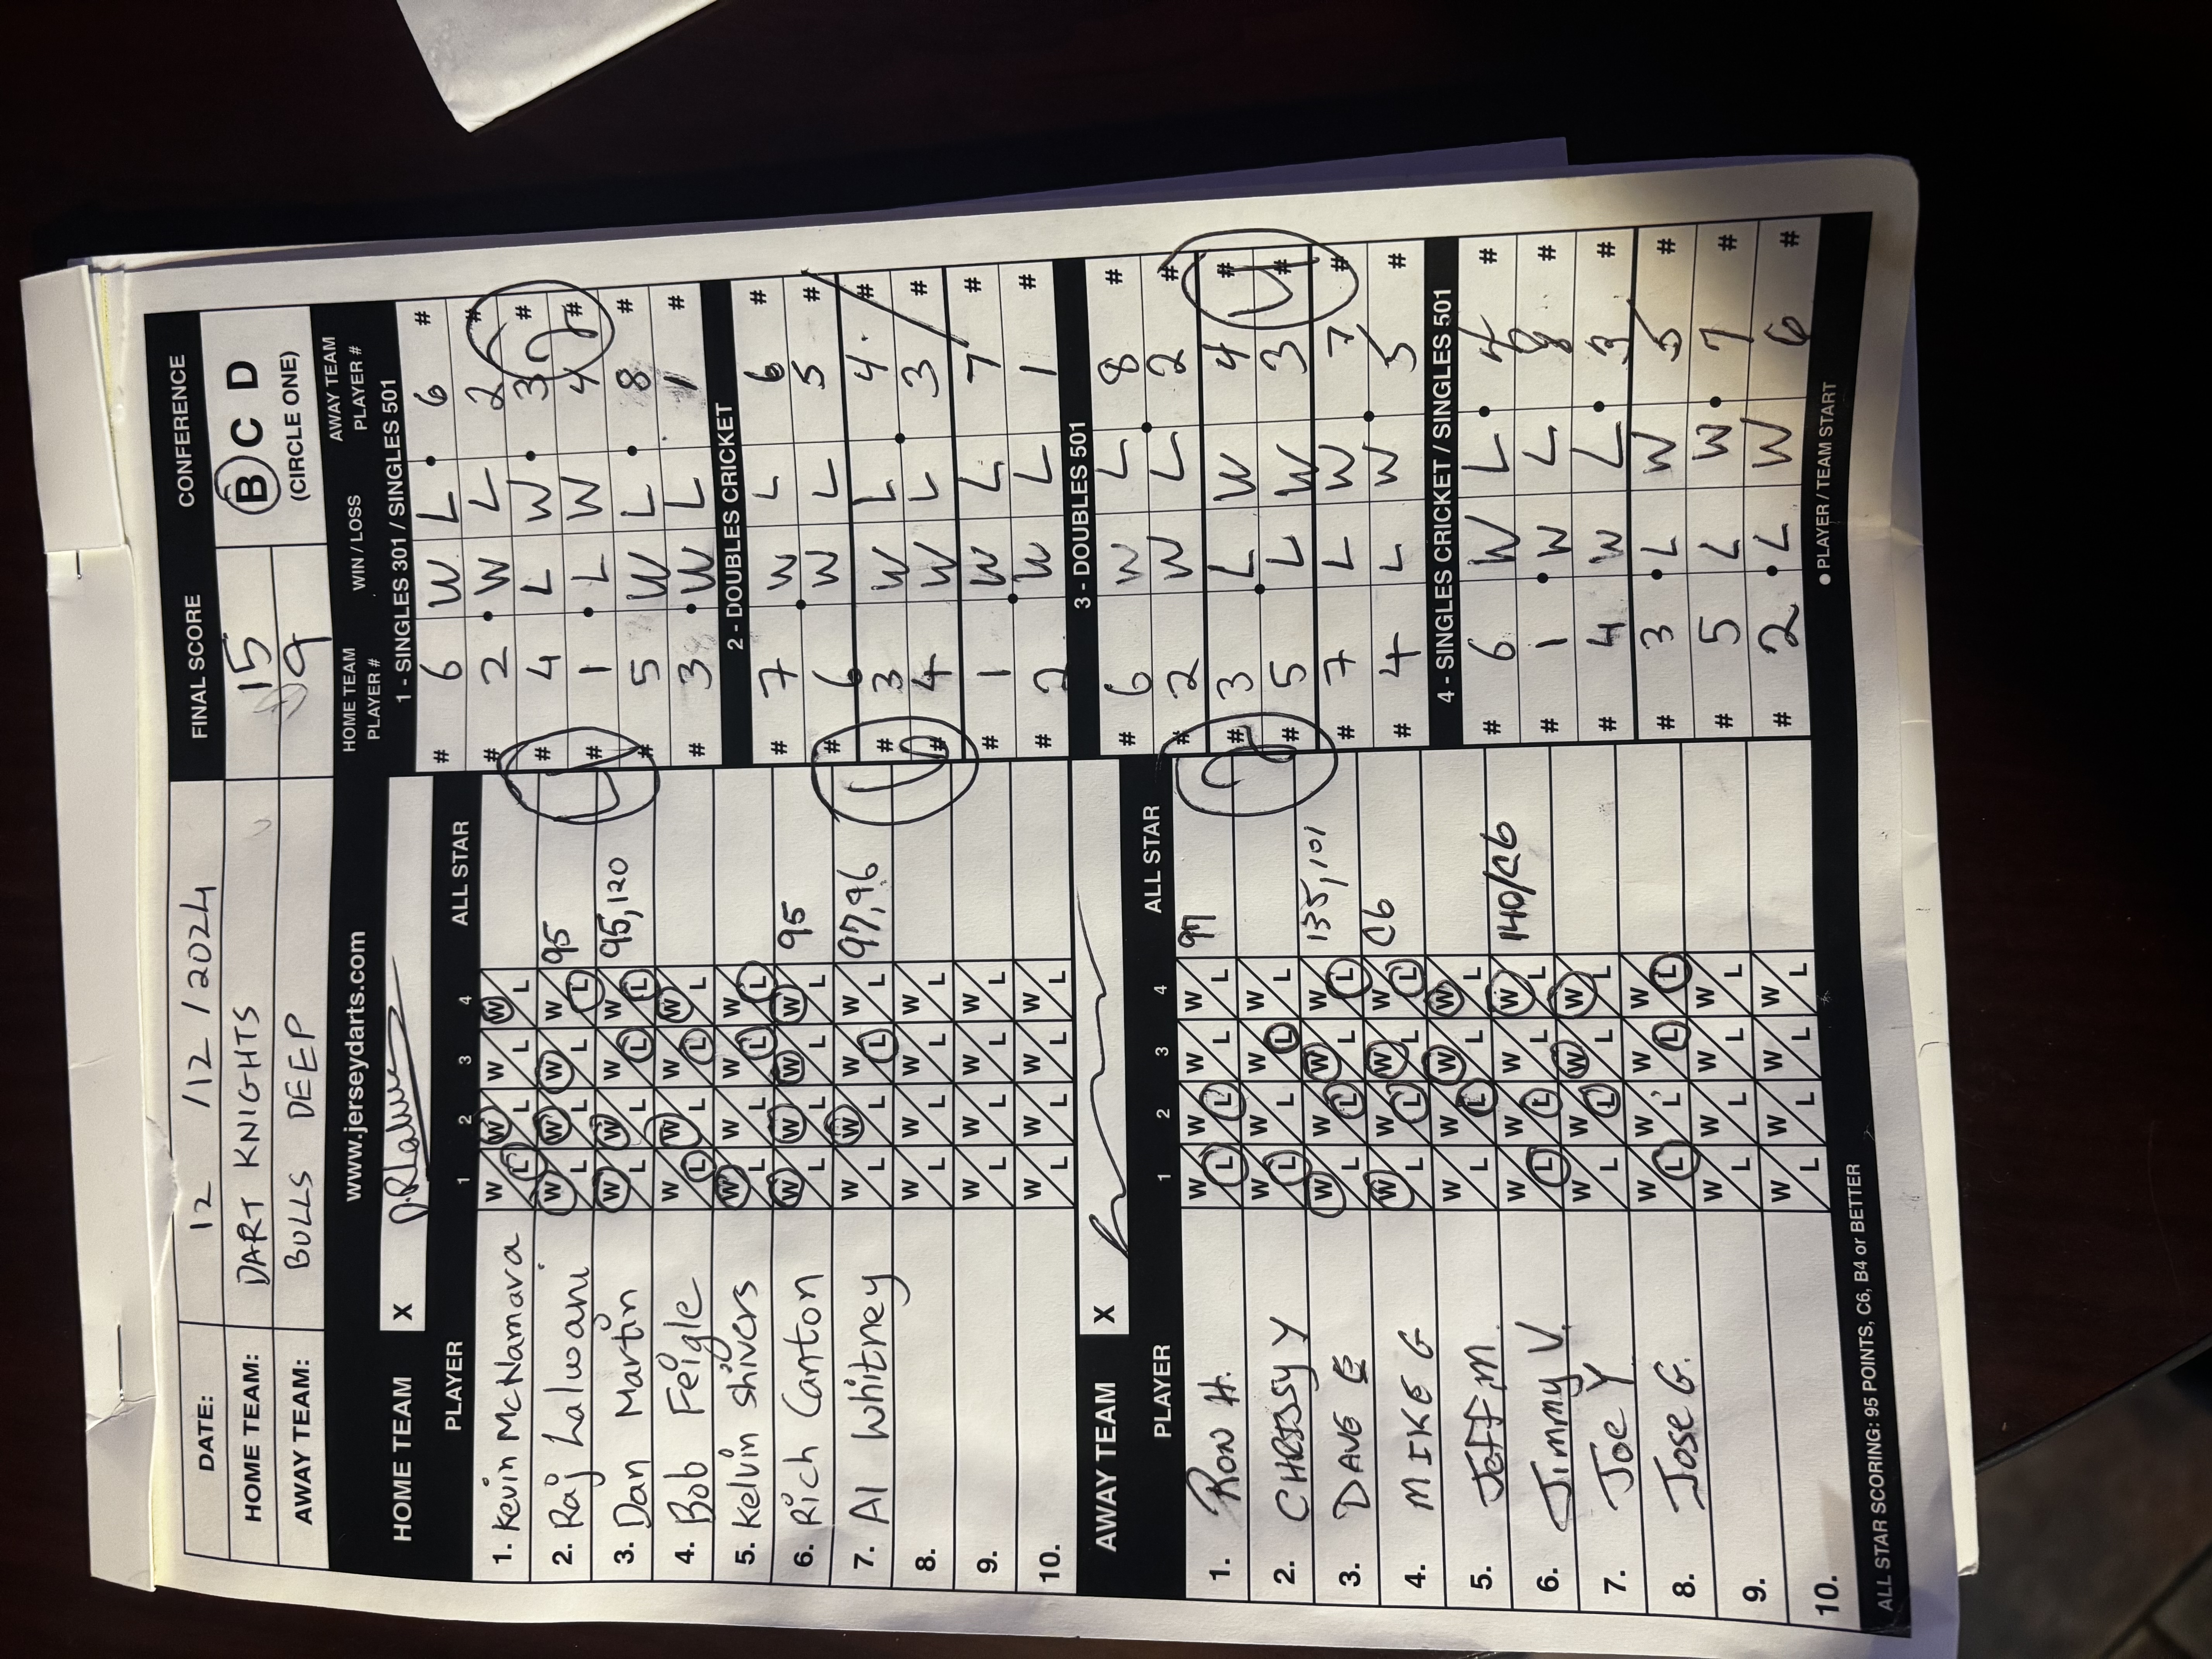 DATE: 12 / 12 / 2024 FINAL SCORE CONFERENCE
HOME TEAM: DART KNIGHTS 15 B C D
AWAY TEAM: BULLS DEEP 9 (CIRCLE ONE)
www.jerseydarts.com
HOME TEAM X
PLAYER 1 2 3 4 ALL STAR
1. Kevin McNamara W L W L W L W L
2. Raj Lalwani W L W L W L W L 95
3. Dan Martin W L W L W L W L 95, 120
4. Bob Feigle W L W L W L W L
5. Kelvin Shivers W L W L W L W L
6. Rich Canton W L W L W L W L 95
7. Al Whitney W L W L W L W L 97, 96
8. W L W L W L W L
9. W L W L W L W L
10. W L W L W L W L
AWAY TEAM X
PLAYER 1 2 3 4 ALL STAR
1. Ron H. W L W L W L W L 97
2. CHRISSY Y W L W L W L W L
3. DAVE W L W L W L W L 135, 101
4. MIKE G W L W L W L W L C6
5. Jeff M. W L W L W L W L
6. Jimmy V. W L W L W L W L 140/C6
7. Joe Y W L W L W L W L
8. Jose G. W L W L W L W L
9. W L W L W L W L
10. W L W L W L W L
ALL STAR SCORING: 95 POINTS, C6, B4 or BETTER
HOME TEAM PLAYER # WIN / LOSS AWAY TEAM PLAYER #
1 - SINGLES 301 / SINGLES 501
# 6 W L 6 #
# 2 W L 2 #
# 4 L W 3 #
# 1 L W 4 #
# 5 W L 8 #
# 3 W L 1 #
4 2
2 - DOUBLES CRICKET
# 7 W L 6 #
# 6 W L 5 #
# 3 W L 4 #
# 4 W L 3 #
# 1 W L 7 #
# 2 W L 1 #
6
3 - DOUBLES 501
# 6 W L 8 #
# 2 W L 2 #
# 3 L W 4 #
# 5 L W 3 #
# 7 L W 7 #
# 4 L W 5 #
2 4
4 - SINGLES CRICKET / SINGLES 501
# 6 W L 4 #
# 1 W L 8 #
# 4 W L 3 #
# 3 L W 5 #
# 5 L W 7 #
# 2 L W 6 #
● PLAYER / TEAM START